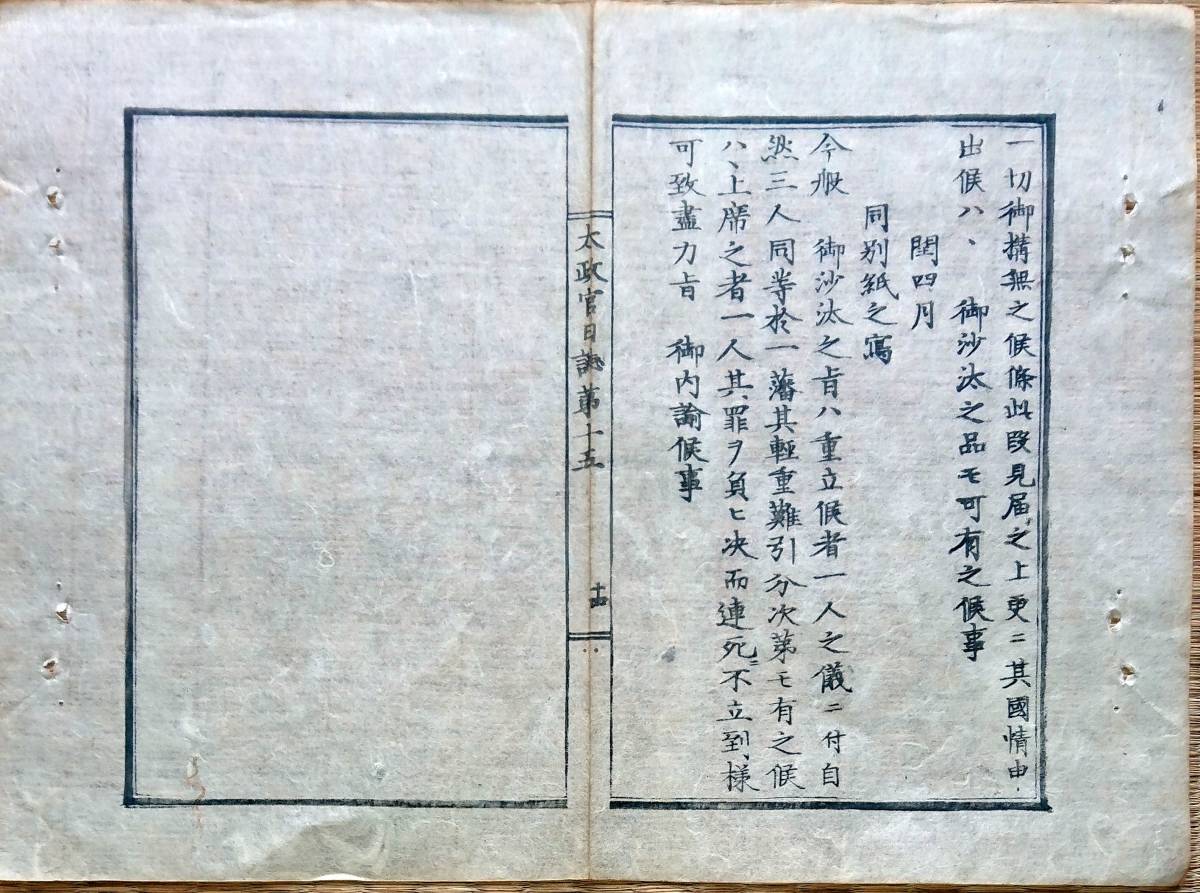 一切御搆無之候條此段見届之上更ニ其國情申
出候ハヽ 御沙汰之品モ可有之候事
閏四月
同別紙之寫
今般 御沙汰之旨ハ重立候者一人之儀ニ付自
然三人同等於一藩其輕重難引分次第モ有之候
ハヽ上席之者一人其罪ヲ負ヒ決而連死ニ不立到樣
可致盡力旨 御内諭候事
太政官日誌第十五
十四